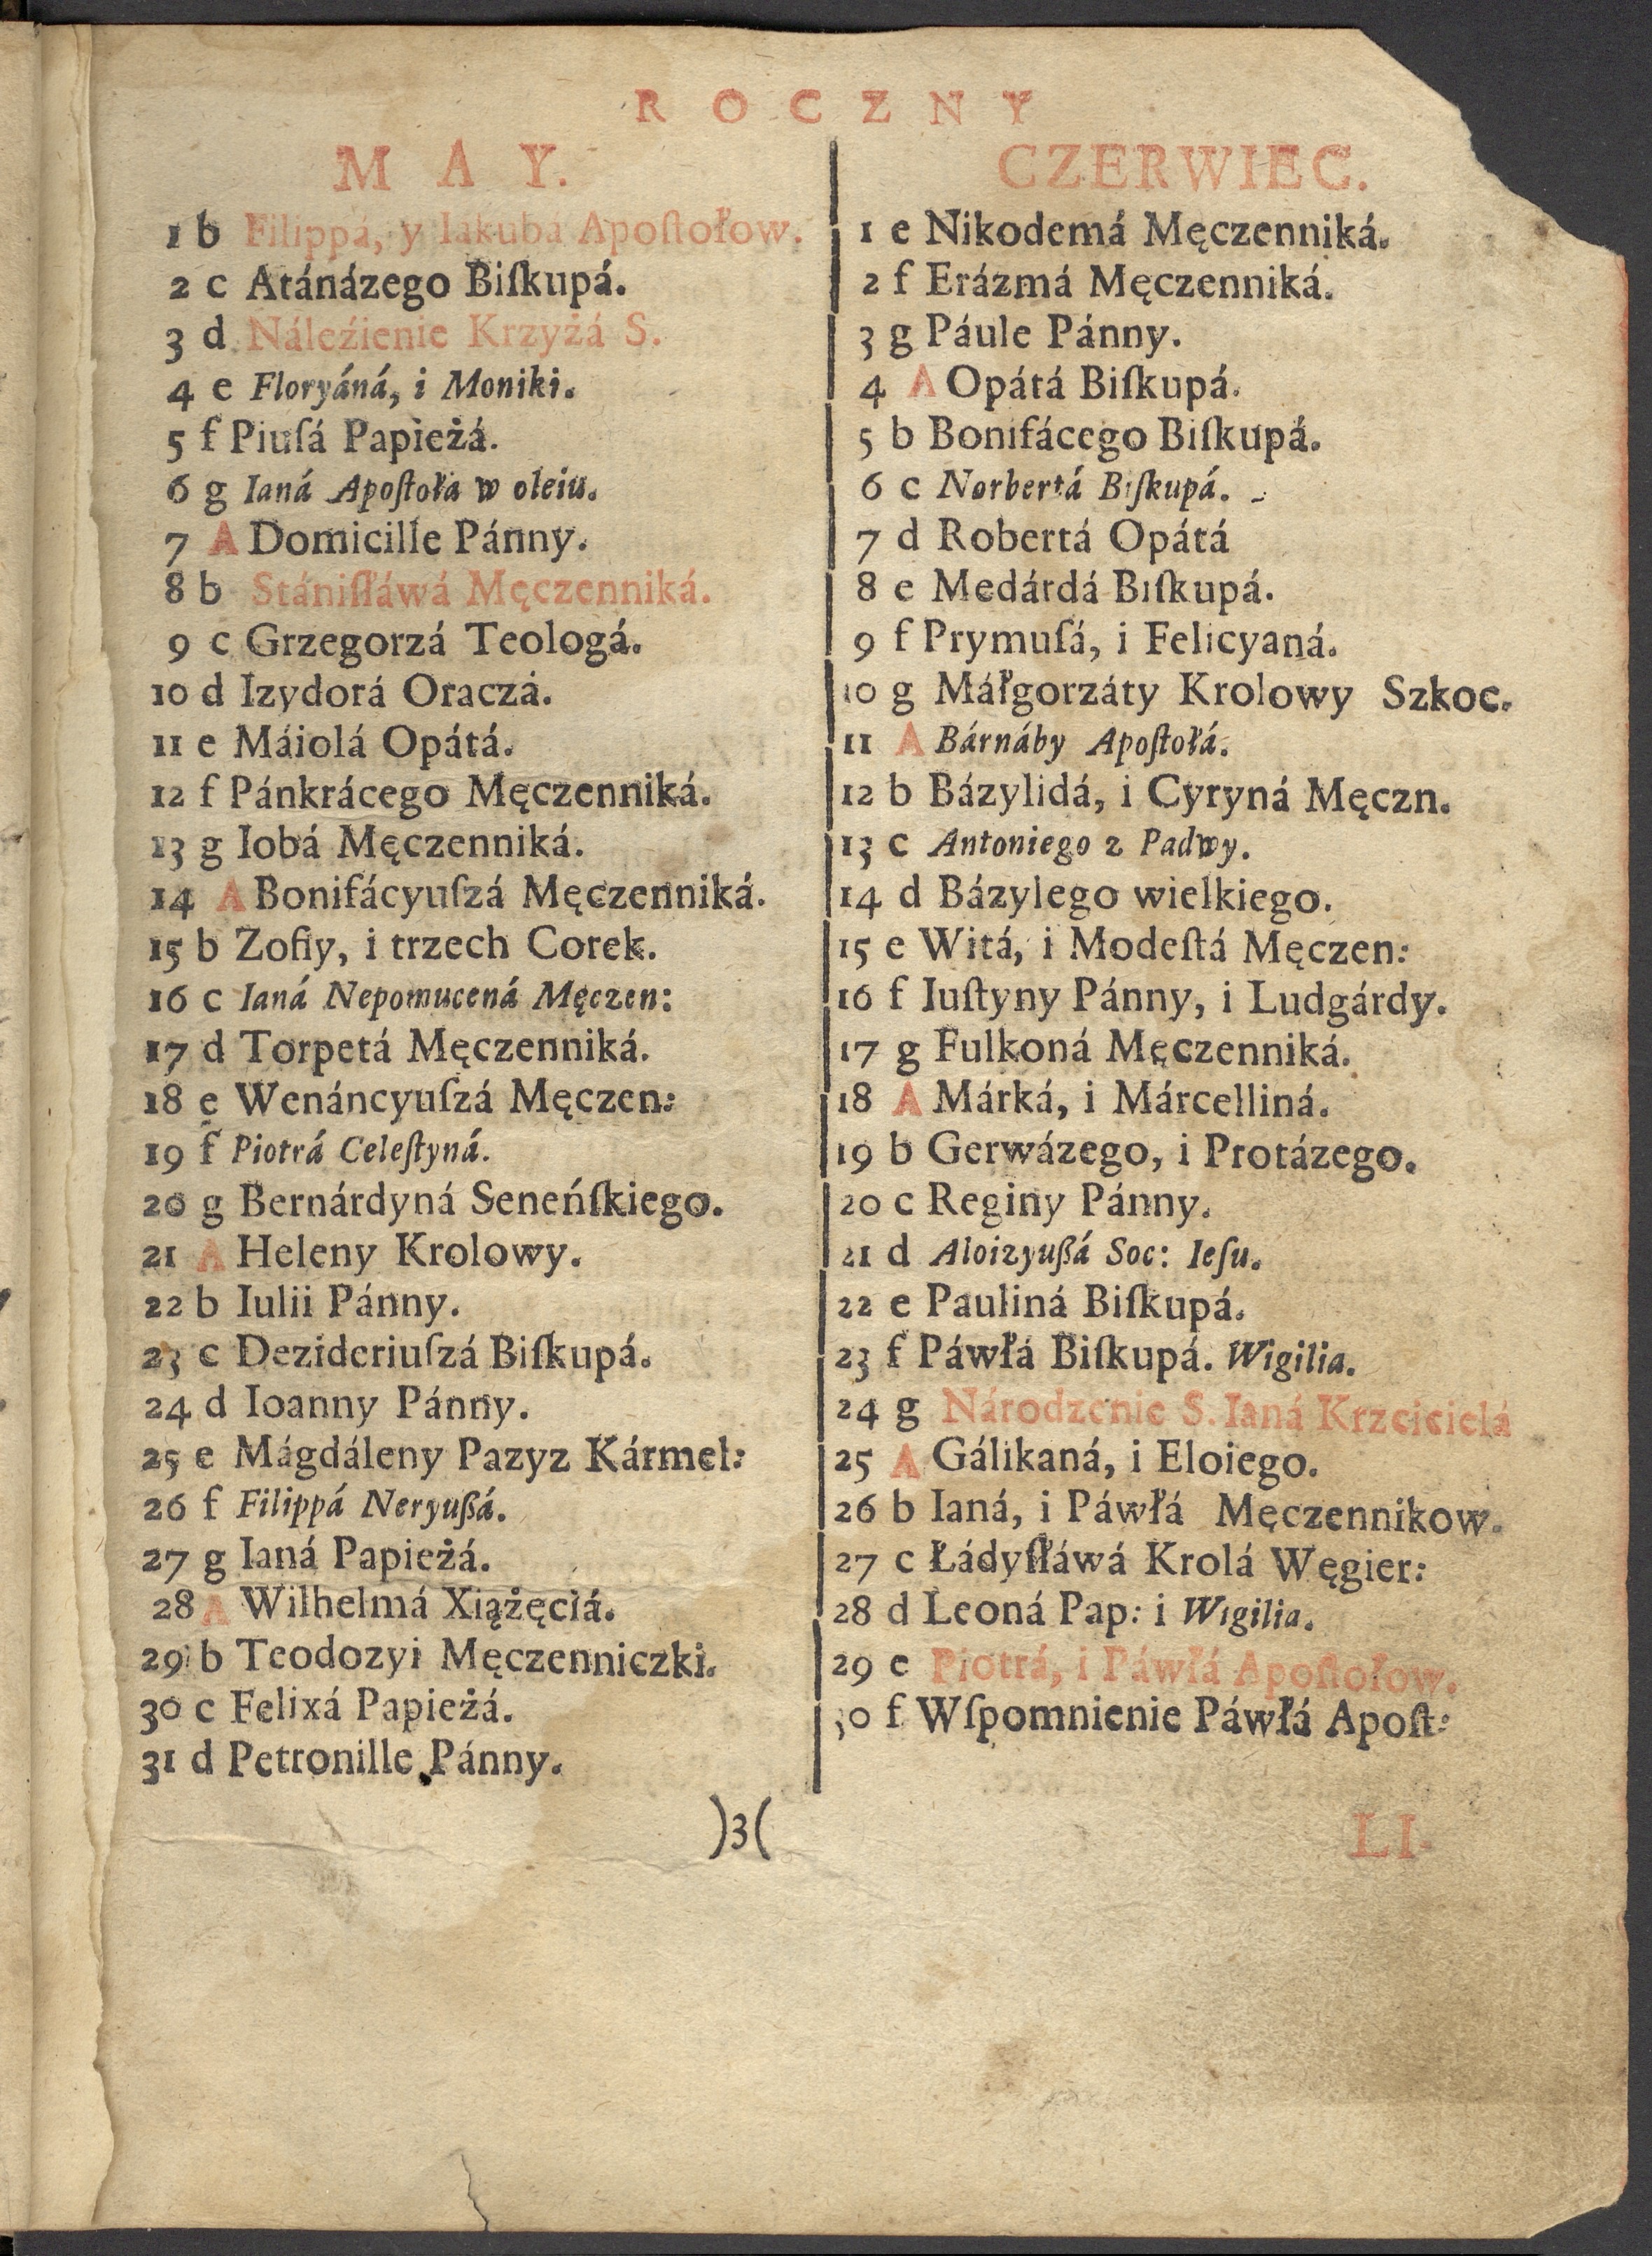 ROCZNY
MAY.
1 b Filippá, y Iakuba Apoſtołow.
2 c Atánázego Biſkupá.
3 d Náleźienie Krzyżá S.
4 e Floryáná, i Moniki.
5 f Piuſá Papieżá.
6 g Ianá Apoſtoła w oleiu.
7 A Domicille Pánny.
8 b Stániſłáwá Męczenniká.
9 c Grzegorzá Teologá.
10 d Izydorá Oraczá.
11 e Máiolá Opátá.
12 f Pánkrácego Męczenniká.
13 g Iobá Męczenniká.
14 A Bonifácyuſzá Męczenniká.
15 b Zofiy, i trzech Corek.
16 c Ianá Nepomucená Męczen:
17 d Torpetá Męczenniká.
18 e Wenáncyuſzá Męczen:
19 f Piotrá Celeſtyná.
20 g Bernárdyná Seneńſkiego.
21 A Heleny Krolowy.
22 b Iulii Pánny.
23 c Dezideriuſzá Biſkupá.
24 d Ioanny Pánny.
25 e Mágdáleny Pazyz Kármel:
26 f Filippá Neryußá.
27 g Ianá Papieżá.
28 A Wilhelmá Xiążęciá.
29 b Teodozyi Męczenniczki.
30 c Felixá Papieżá.
31 d Petronille Pánny.
CZERWIEC.
1 e Nikodemá Męczenniká.
2 f Erázmá Męczenniká.
3 g Páule Pánny.
4 A Opátá Biſkupá.
5 b Bonifácego Biſkupá.
6 c Norbertá Biſkupá.
7 d Robertá Opátá
8 e Medárdá Biſkupá.
9 f Prymuſá, i Felicyaná.
10 g Máłgorzáty Krolowy Szkoc.
11 A Bárnáby Apoſtołá.
12 b Bázylidá, i Cyryná Męczn.
13 c Antoniego z Padwy.
14 d Bázylego wielkiego.
15 e Witá, i Modeſtá Męczen:
16 f Iuſtyny Pánny, i Ludgárdy.
17 g Fulkoná Męczenniká.
18 A Márká, i Márcelliná.
19 b Gerwázego, i Protázego.
20 c Reginy Pánny.
21 d Aloizyußá Soc: Ieſu.
22 e Pauliná Biſkupá.
23 f Páwłá Biſkupá. Wigilia.
24 g Národzenie S. Ianá Krzcicielá
25 A Gálikaná, i Eloiego.
26 b Ianá, i Páwłá Męczennikow.
27 c Łádyſłáwá Krolá Węgier:
28 d Leoná Pap: i Wigilia.
29 e Piotrá, i Páwłá Apoſtołow.
30 f Wſpomnienie Páwłá Apoſt:
)3(
LI-